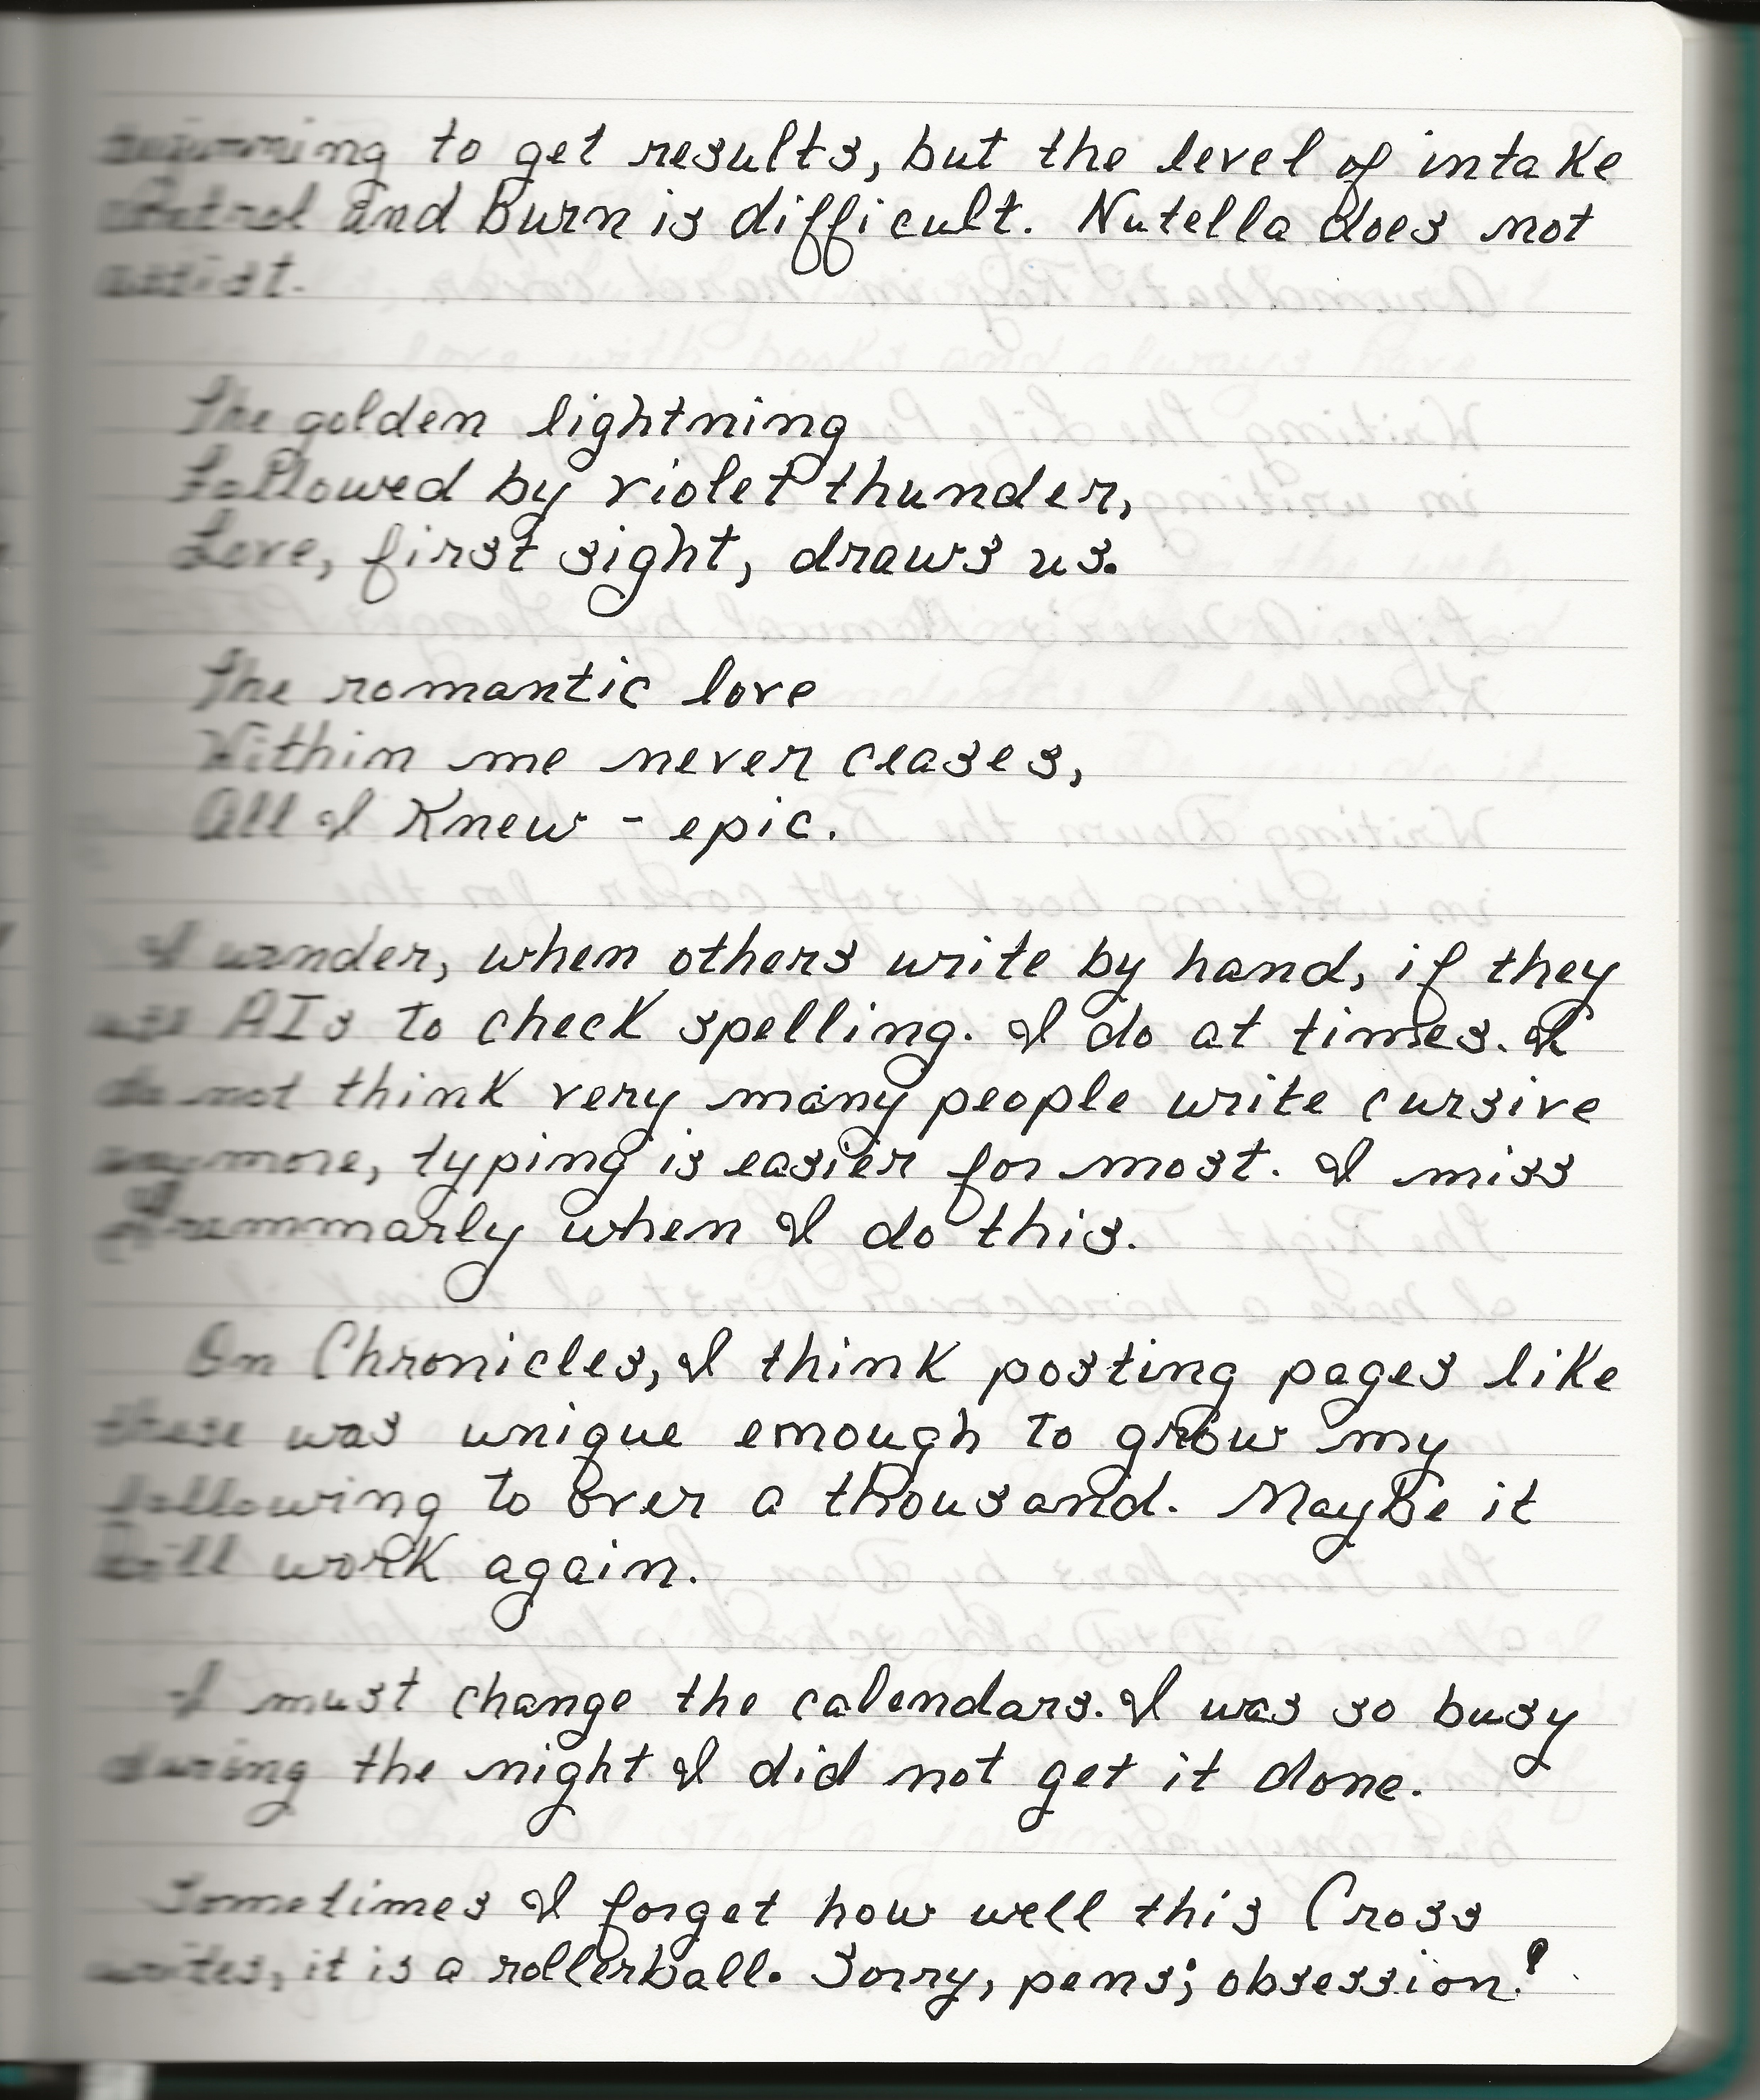 beginning to get results, but the level of intake
control and Burn is difficult. Nutella does not
assist.
The golden lightning
Followed by violet thunder,
Love, first sight, draws us.
The romantic love
Within me never ceases,
All I Knew - epic.
I wander, when others write by hand, if they
use AIs to check spelling. I do at times. I
do not think very many people write cursive
anymore, typing is easier for most. I miss
Grammarly when I do this.
On Chronicles, I think posting pages like
these was unique enough to grow my
following to over a thousand. MayBe it
will work again.
I must change the calendars. I was so busy
during the night I did not get it done.
Sometimes I forget how well this Cross
writes, it is a rollerball. Sorry, pens; obsession!